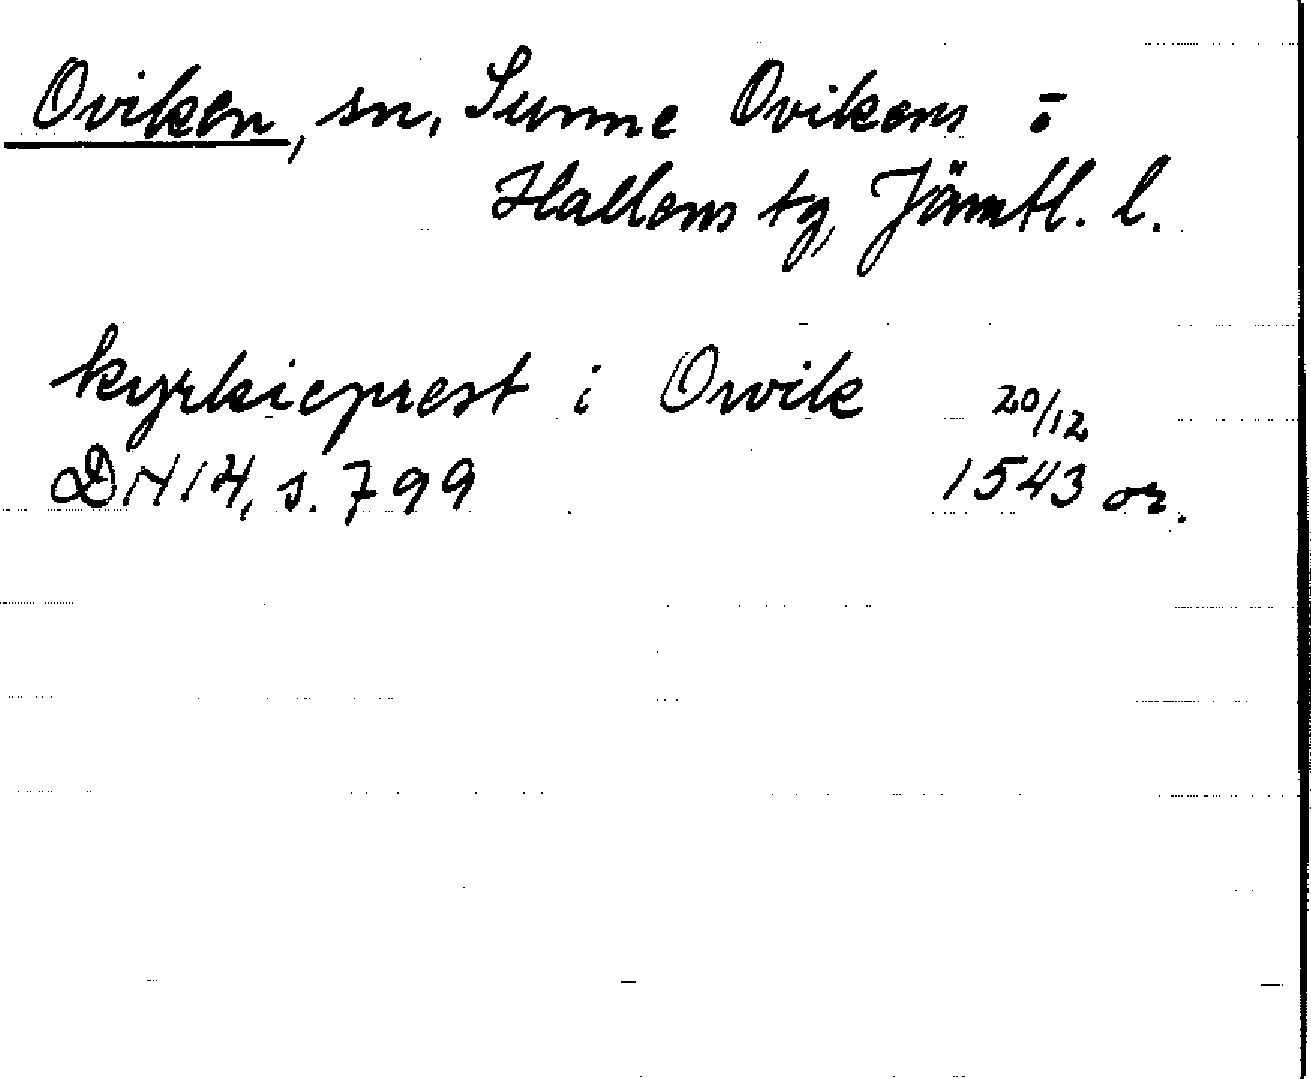 Oviken, sn, Sunne Ovikens o
Hallens tg, Jämtl. l.
kyrkieprest i Orvik 20/12
DN 14, s. 799 1543 or.